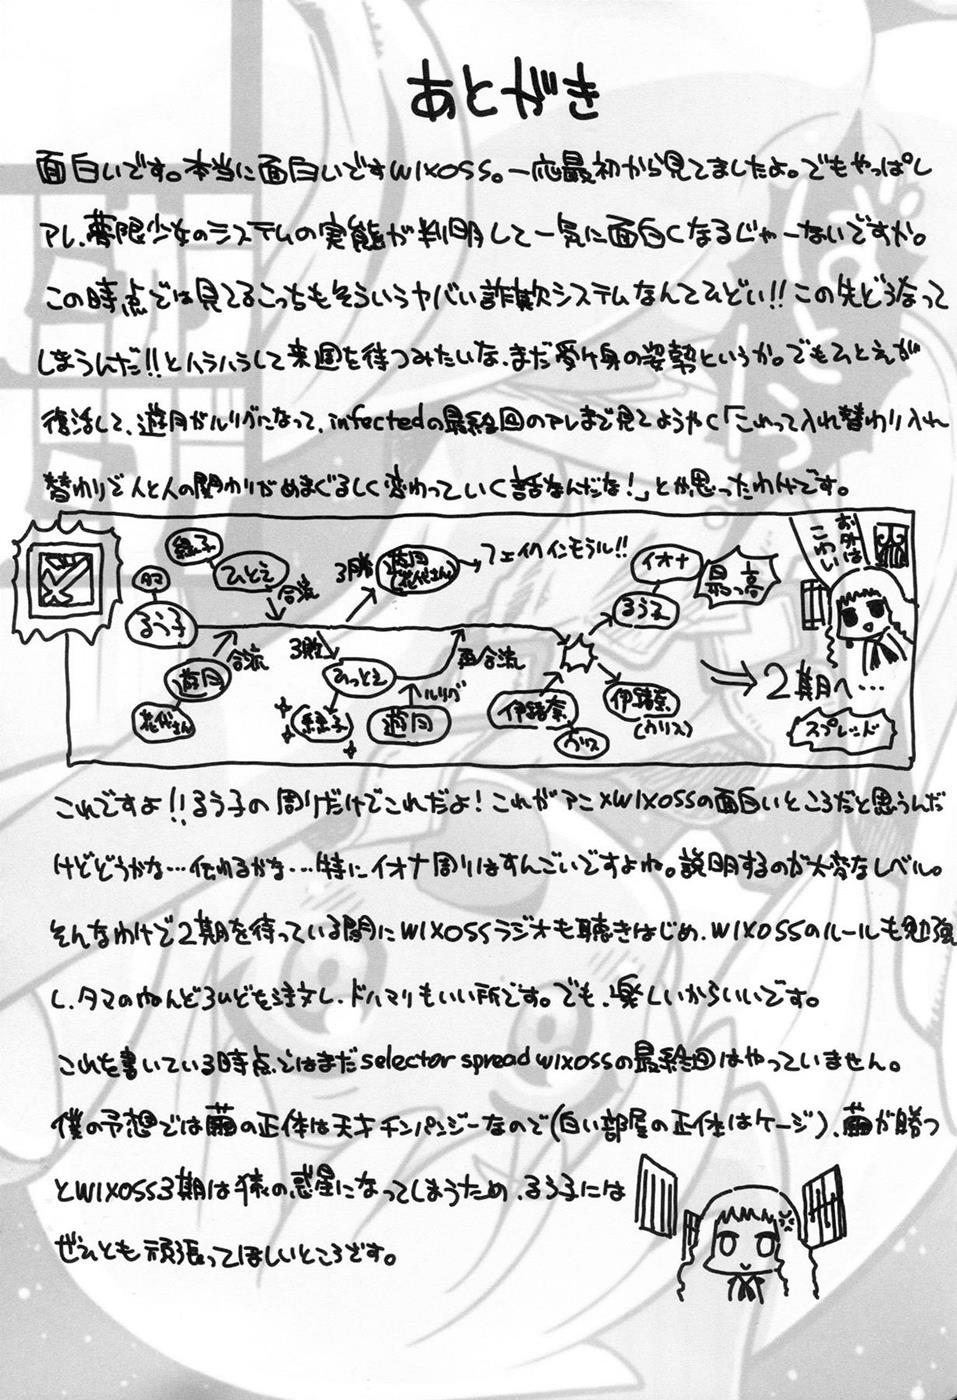 あとがき
面白いです。本当に面白いですWIXOSS。一応最初から見てましたよ。でもやっぱし
アレ、夢限少女のシステムの実態が判明して一気に面白くなるじゃーないですか。
この時点では見てるこっちもそういうヤバい詐欺システムなんてひどい!!この先どうなって
しまうんだ!!とハラハラして来週を待つみたいな、まだ受け身の姿勢というか。でもひとえが
復活して、遊月がルリグになって、infectedの最終回のアレまで見てようやく「これって入れ替わり入れ
替わりで人と人の関わりがめまぐるしく変わっていく話なんだな!」とか思ったわけです。
お外は
こわい
緑子
ひとえ
合流
3敗
遊月
(花代さん)
フェイクインモラル!!
イオナ
るう子
最っ高
タマ
るう子
合流
遊月
花代さん
3敗
ひとえ
緑子
再合流
ルリグ
遊月
伊緒奈
ウリス
伊緒奈
(ウリス)
2期へ…
スプレッド
これですよ!!るう子の周りだけでこれだよ!これがアニメWIXOSSの面白いところだと思うんだ
けどどうかな…伝わるかな…特にイオナ周りはすんごいですよね。説明するのが大変なレベル。
そんなわけで2期を待っている間にWIXOSSラジオも聴きはじめ、WIXOSSのルールも勉強
し、タマのねんどろいどを注文し、ドハマりもいい所です。でも、楽しいからいいです。
これを書いている時点ではまだselector spread wixossの最終回はやっていません。
僕の予想では繭の正体は天才チンパンジーなので(白い部屋の正体はケージ)、繭が勝つ
とWIXOSS3期は猿の惑星になってしまうため、るう子には
ぜひとも頑張ってほしいところです。